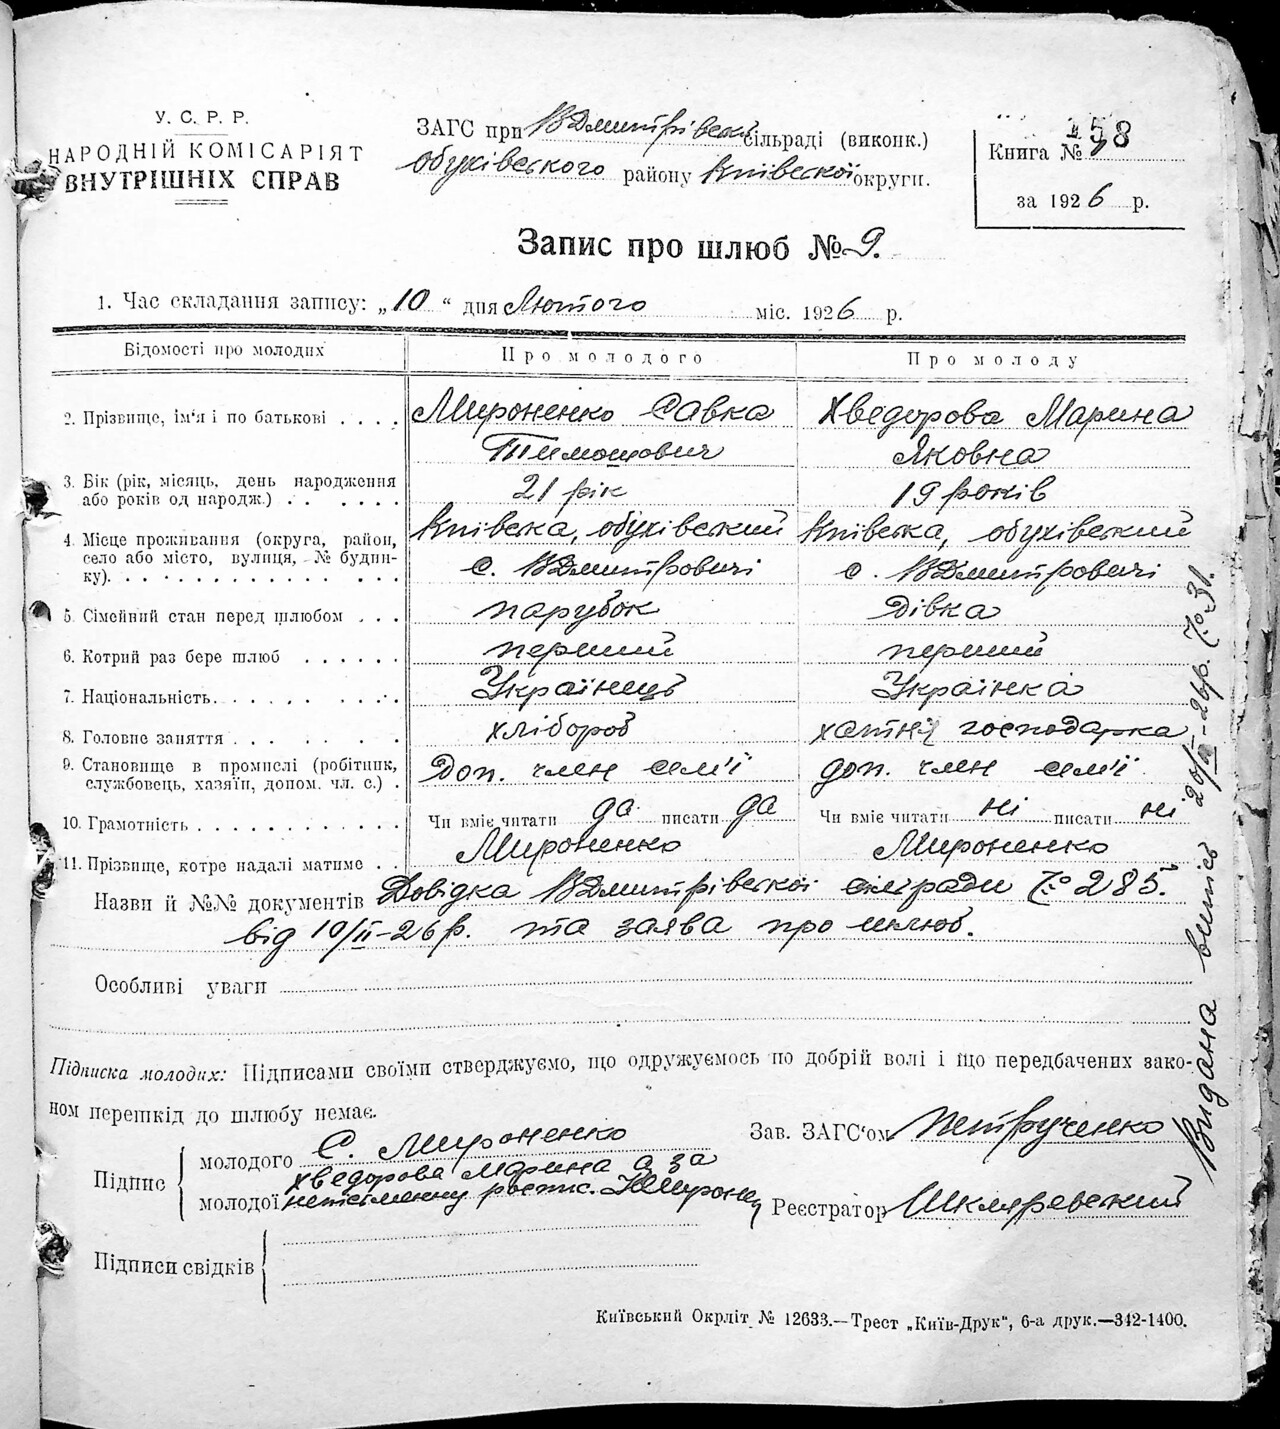 У. С. Р. Р.
НАРОДНІЙ КОМІСАРІЯТ
ВНУТРІШНІХ СПРАВ
ЗАГС при ВДмитрівськ сільраді (виконк.)
обухівського району Київської округи.
Книга № 8
за 1926 р.
Запис про шлюб № 9.
1. Час складання запису: „10" дня Лютого міс. 1926 р.
Відомості про молодих Про молодого Про молоду
2. Прізвище, ім'я і по батькові . . . . Мироненко Савка Хведорова Марина
Тимошович Яковна
3. Вік (рік, місяць, день народження
або років од народж.) . . . . . . 21 рік 19 років
4. Місце проживання (округа, район, Київська, обухівський Київська, обухівський
село або місто, вулиця, № будин-
ку). . . . . . . . . . . . . . . с. ВДмитровичі с. ВДмитровичі
5. Сімейний стан перед шлюбом . . . парубок дівка
6. Котрий раз бере шлюб . . . . . . перший перший
7. Національність. . . . . . . . . . Українець Українка
8. Головне заняття . . . . . . . хлібороб хатня господарка
9. Становище в промислі (робітник,
службовець, хазяїн, допом. чл. с.) . Доп. член сем'ї доп. член сем'ї
10. Грамотність . . . . . . . . . . . Чи вміє читати да писати да Чи вміє читати ні писати ні
11. Прізвище, котре надалі матиме . . Мироненко Мироненко
Назви й №№ документів Довідка ВДмитрівської сільради № 285.
від 10/II-26 р. та заява про шлюб.
Особливі уваги
Підписка молодих: Підписами своїми стверджуємо, що одружуємось по добрій волі і що передбачених зако-
ном перешкід до шлюбу немає.
Підпис
молодого С. Мироненко
Хведорова Марина а за
молодої неписьменну роспис.
Зав. ЗАГС'ом Петрученко
Реєстратор Шкляревський
Підписи свідків
Київський Окрліт № 12633.—Трест „Київ-Друк", 6-а друк.—342-1400.
Видана випись 20/II-26 р. № 31.